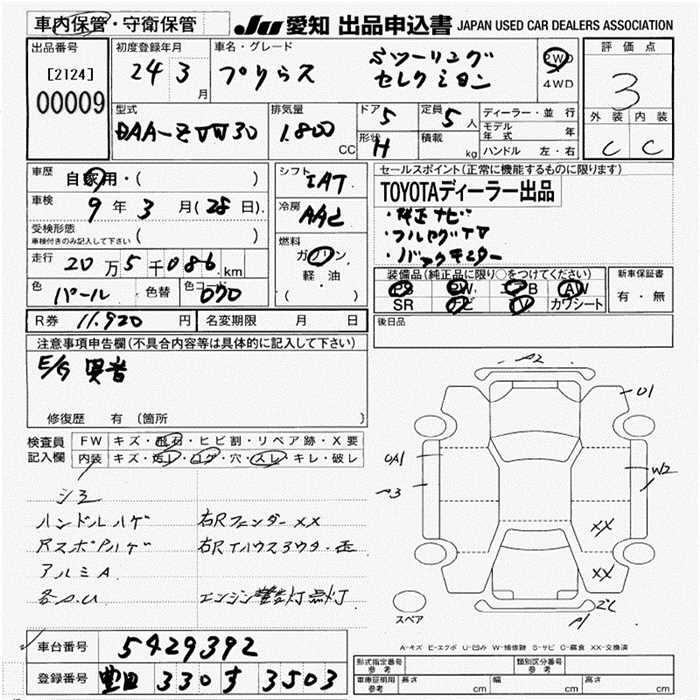 車内保管・守衛保管
JU 愛知 出品申込書 JAPAN USED CAR DEALERS ASSOCIATION
出品番号
[2124]
00009
初度登録年月
24年 3月
車名・グレード
プリウス Sツーリング
セレクション
2WD
4WD
評価点
3
外装 内装
C C
型式
DAA-ZVW30
排気量
1.800 CC
ドア 5
形状 H
定員 5人
積載 kg
ディーラー・並行
モデル年式 年
ハンドル 左・右
車歴
自家用・( )
車検 9年 3月(28日).
受検形態
車検付きのみ記入して下さい ( )
走行 20万 5千086km
色 パール 色替 色コード 070
シフト IAT
冷房 AAC
燃料
ガソリン
軽・油
( )
セールスポイント(正常に機能するものに限ります)
TOYOTAディーラー出品
・純正ナビ
・フルセグTV
・バックモニター
装備品(純正品に限り○をつけてください)
PS PW エアB AW
SR ナビ TV カワシート
新車保証書
有・無
後日品
R券 11.920円 名変期限 月 日
注意事項申告欄(不具合内容等は具体的に記入して下さい)
E/G 異音
修復歴 有 〔箇所 〕
検査員
記入欄
FW キズ・飛石・ヒビ割・リペア跡・X要
内装 キズ・汚レ・コゲ・穴・スレ・キレ・破レ
シミ
ハンドルハゲ 右Rフェンダー XX
アルミA
各A.U エンジン警告灯点灯
A2
U1
UA1
A3
W2
XX
XX
A1
スペア
A-キズ E-エクボ U-凹み W-補修跡 S-サビ C-腐食 XX-交換済
車台番号 5429392
登録番号 豊田 330 す 3503
形式指定番号
参考
類別区分番号
参考
車庫証明用
参考
長さ cm 幅 cm 高さ cm